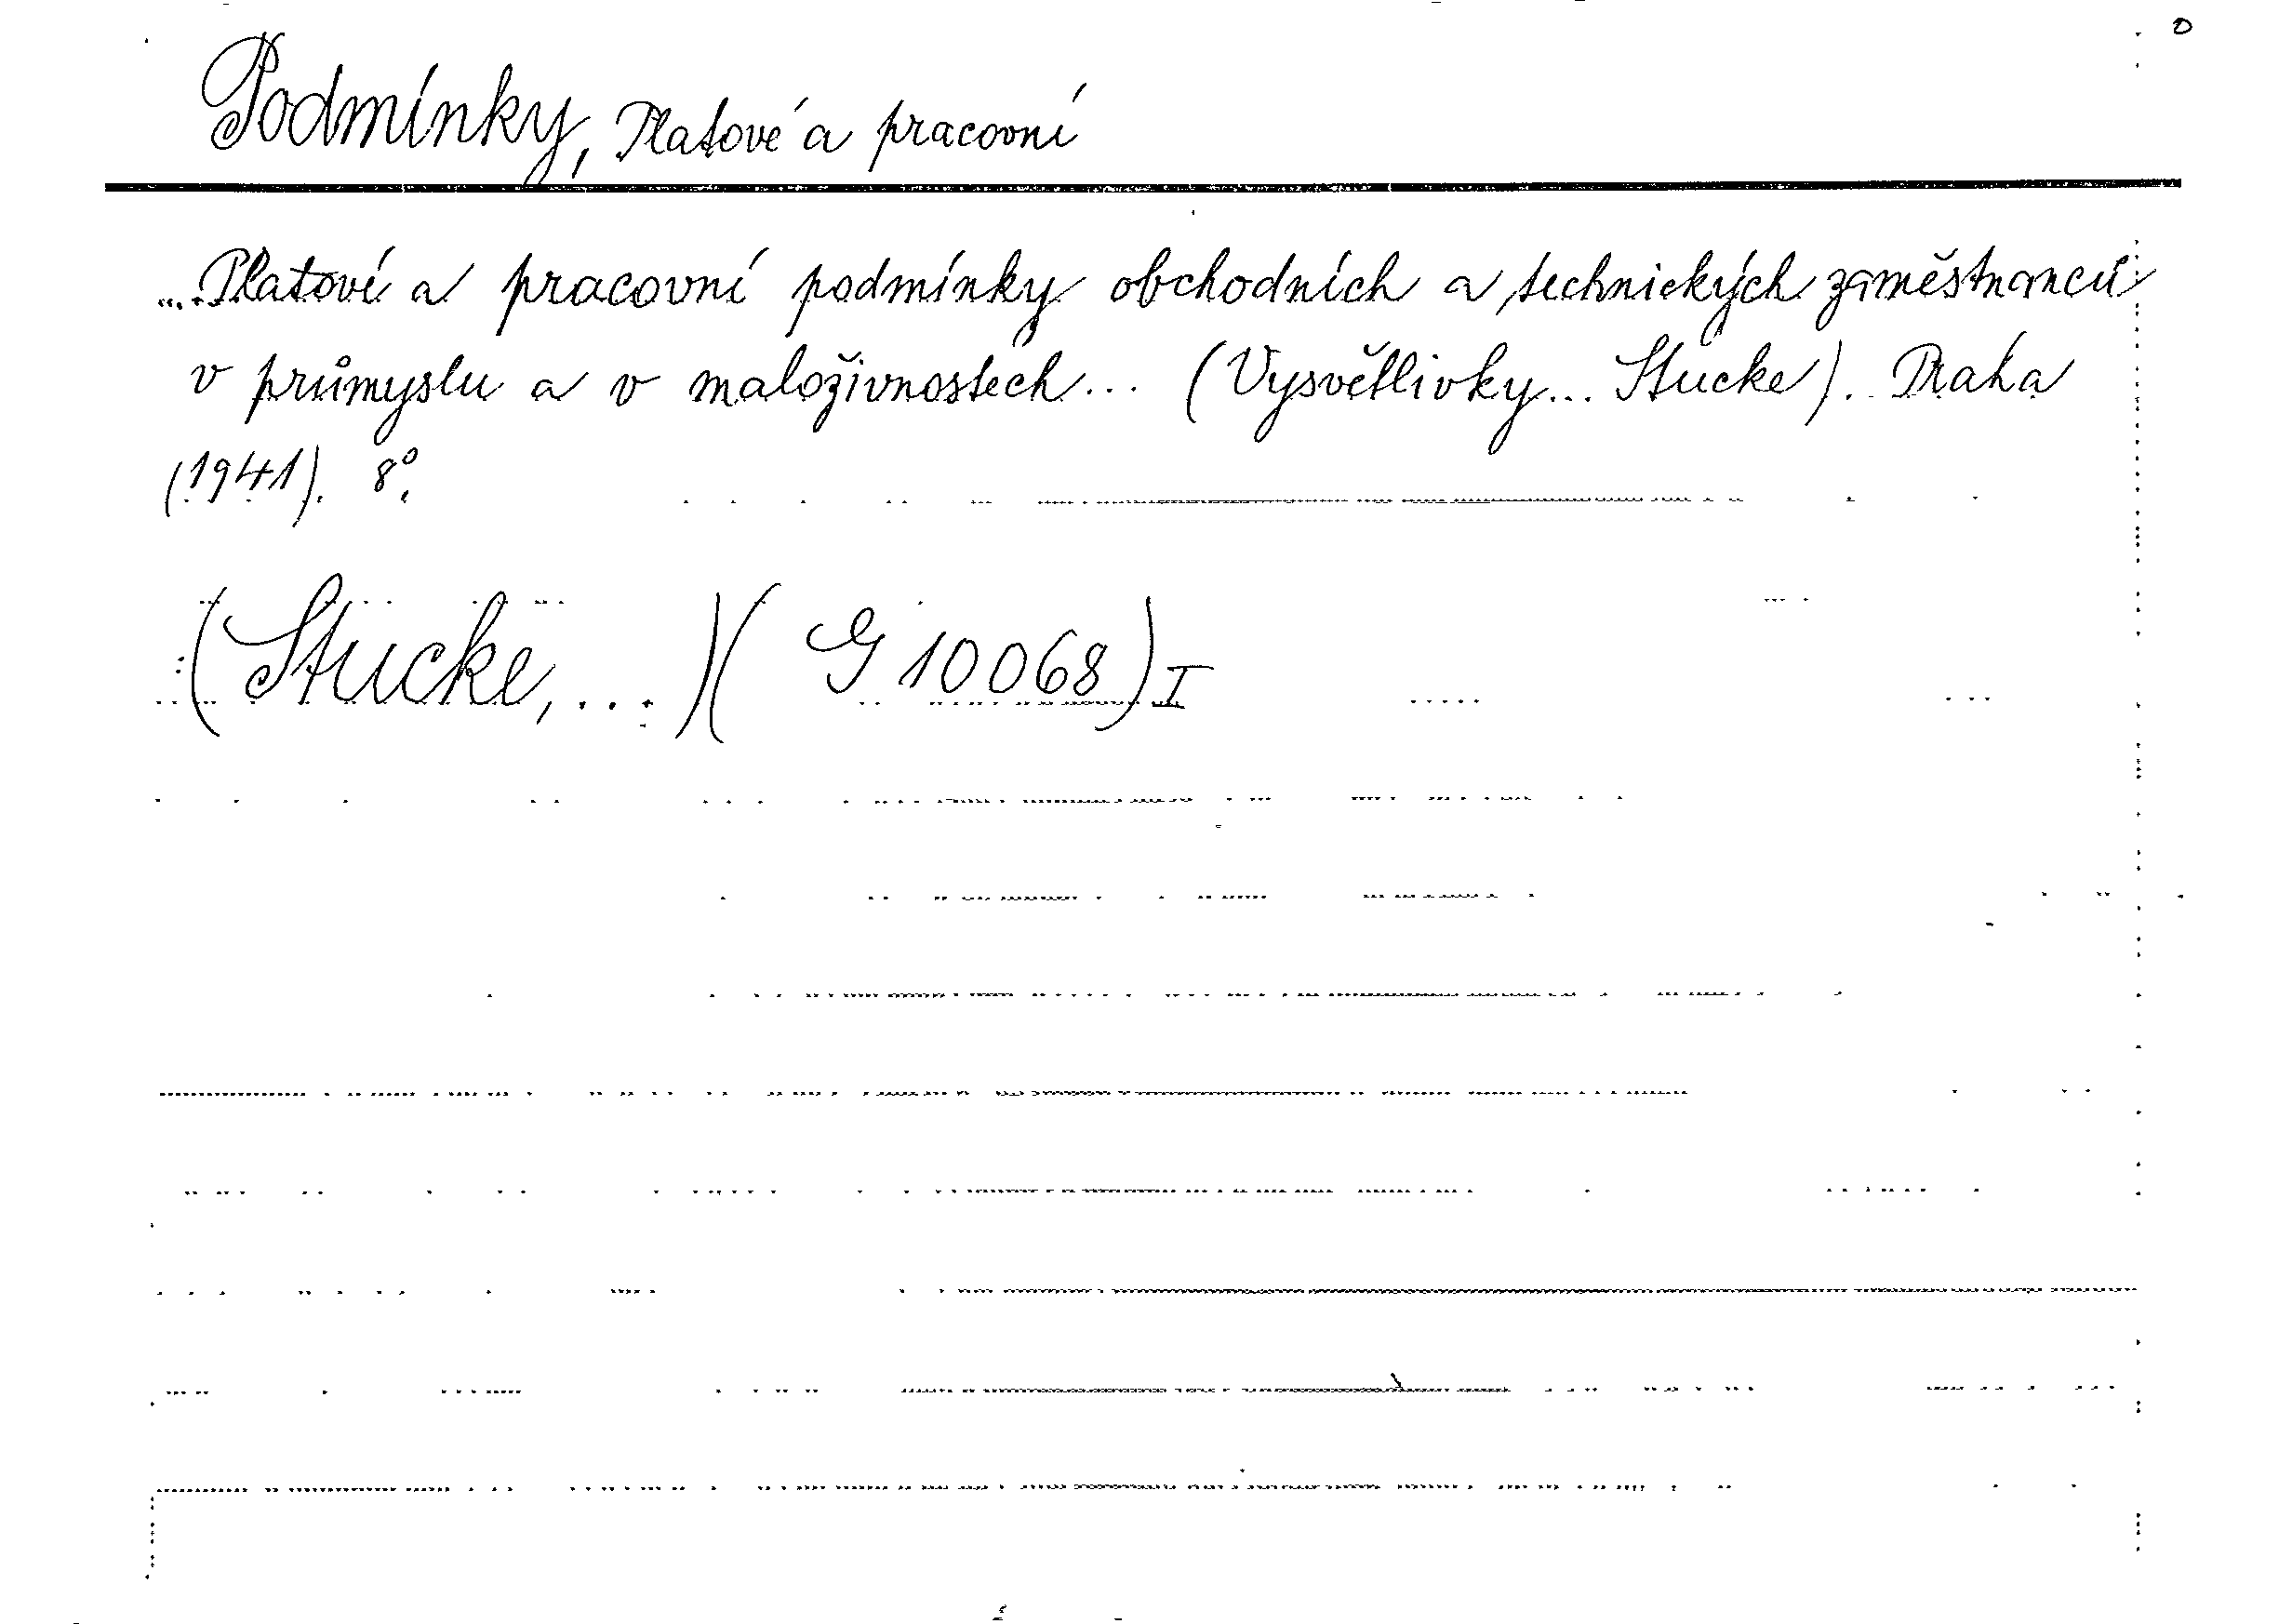 Podmínky, Platové a pracovní
... Platové a pracovní podmínky obchodních a technických zaměstnanců
v průmyslu a v maloživnostech... (Vysvětlivky... Stucke). Praha
(1941). 8°.
(Stucke, ...)( G 10068) I